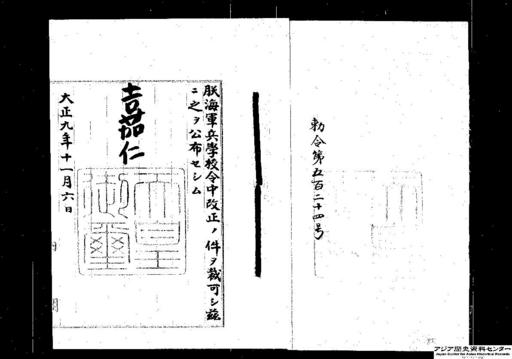 勅令第五百二十四号
朕海軍兵學校令中改正ノ件ヲ裁可シ茲
ニ之ヲ公布セシム
嘉仁
天皇御璽
大正九年十一月六日
内閣
アジア歴史資料センター
Japan Center for Asian Historical Records